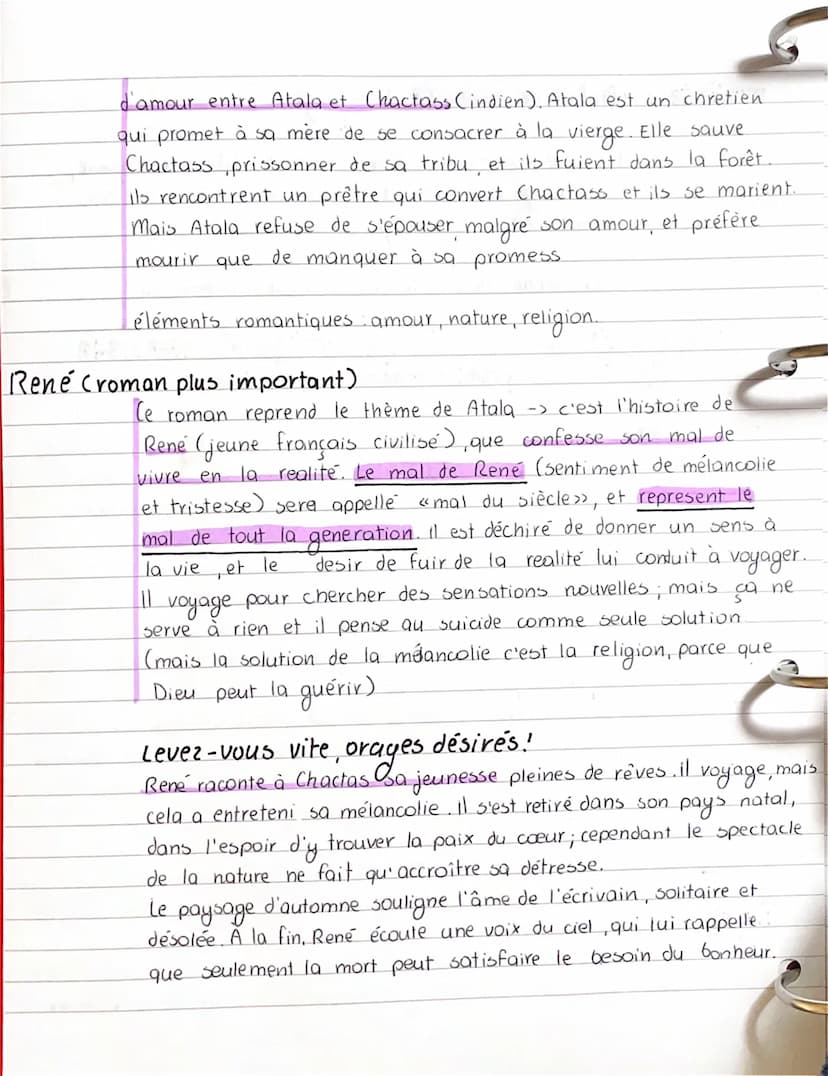 d'amour entre Atala et Chactass (indien). Atala est un chretien
qui promet à sa mère de se consacrer à la vierge. Elle sauve
Chactass, prissonner de sa tribu, et ils fuient dans la forêt.
ils rencontrent un prêtre qui convert Chactass et ils se marient.
Mais Atala refuse de s'épouser, malgré son amour, et préfère
mourir que de manquer à sa promess
éléments romantiques: amour, nature, religion.
René (roman plus important)
Ce roman reprend le thème de Atala -> c'est l'histoire de
René (jeune français civilisé), que confesse son mal de
vivre en la realité. Le mal de René (sentiment de mélancolie
et tristesse) sera appellé «mal du siècle», et represent le
mal de tout la generation. il est déchiré de donner un sens à
la vie, et le desir de fuir de la realité lui conduit à voyager.
Il voyage pour chercher des sensations nouvelles; mais ça ne
serve à rien et il pense au suicide comme seule solution
(mais la solution de la máancolie c'est la religion, parce que
Dieu peut la guérir)
Levez-vous vite, orages désirés!
René raconte à Chactas sa jeunesse pleines de rêves. il voyage, mais
cela a entreteni sa mélancolie. Il s'est retiré dans son pays natal,
dans l'espoir d'y trouver la paix du cœur; cependant le spectacle
de la nature ne fait qu'accroître sa détresse.
Le paysage d'automne souligne l'âme de l'écrivain, solitaire et
désolée. À la fin, René écoute une voix du ciel, qui lui rappelle
que seulement la mort peut satisfaire le besoin du bonheur.